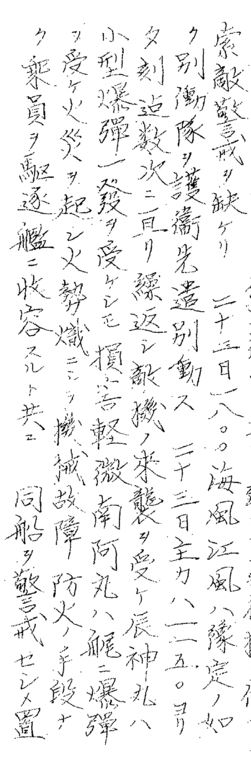 索敵警戒ヲ缺ケリ 二十三日一八〇〇海風江風ハ豫定ノ如
ク別働隊ヲ護衛先遣別動ス 二十三日主力ハ一一五〇ヨリ
夕刻迄数次ニ亘リ繰返シ敵機ノ来襲ヲ受ケ辰神丸ハ
小型爆彈一發ヲ受ケシモ損害軽微南阿丸ハ艇ニ爆彈
ヲ受ケ火災ヲ起シ火勢熾ニシテ機械故障 防火ノ手段ナ
ク乘員ヲ駆逐艦ニ收容スルト共ニ 同船ヲ警戒セシメ置